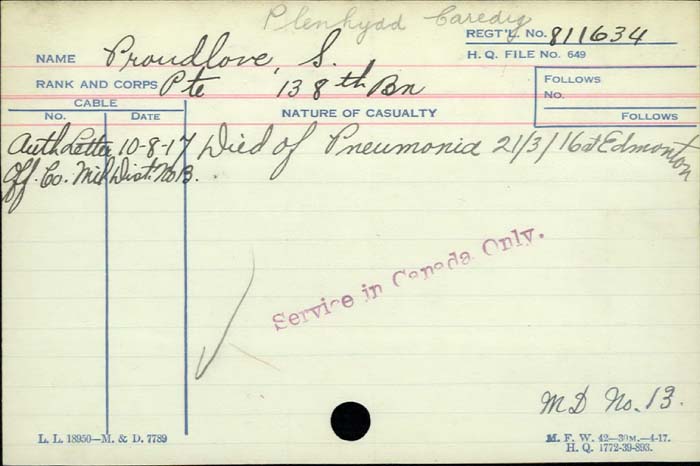 Plenhydd Caredig
NAME Proudlove, S. REGT'L. No. 811634
H. Q. FILE No. 649
RANK AND CORPS Pte 138th Bn
FOLLOWS
No.
FOLLOWS
CABLE
No. DATE NATURE OF CASUALTY
Auth Letter 10-8-17 Died of Pneumonia 21/3/16 at Edmonton
Off. Co. Mil. Dist. No 13.
Service in Canada Only.
M D No. 13.
L. L. 18950—M. & D. 7789
M. F. W. 42—30M.—4-17.
H. Q. 1772-39-893.